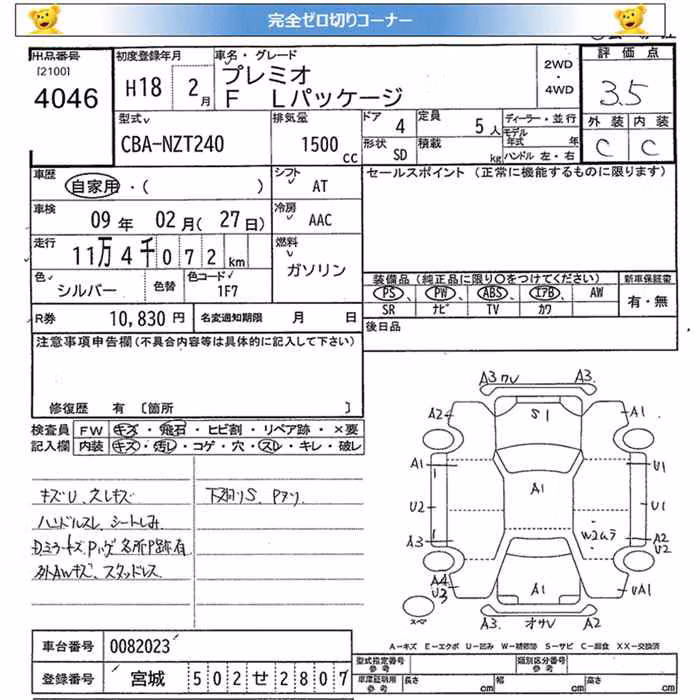 完全ゼロ切りコーナー
出品番号
[2100]
4046
初度登録年月
H18 2月
車名・グレード
プレミオ
F Lパッケージ
2WD
・
4WD
評価点
3.5
外装 内装
C C
型式
CBA-NZT240
排気量
1500 cc
ドア 4
定員 5人
形状 SD
積載 kg
ディーラー・並行
モデル年式 年
ハンドル 左・右
車歴
自家用・( )
シフト AT
セールスポイント (正常に機能するものに限ります)
車検
09年 02月 (27日)
冷房 AAC
走行
11万4千072km
燃料
ガソリン
色
シルバー
色替
色コード
1F7
装備品 (純正品に限り○をつけてください)
PS、PW、ABS、エアB、AW
SR ナビ TV カワ
新車保証書
有・無
R券 10,830円
名変通知期限 月 日
後日品
注意事項申告欄 (不具合内容等は具体的に記入して下さい)
修復歴 有 [箇所 ]
検査員記入欄
FW キズ・飛石・ヒビ割・リペア跡・×要
内装 キズ・汚し・コゲ・穴・スレ・キレ・破レ
キズU、スレキズ
ハンドルスレ、シートしみ
外AWキズ、スタッドレス
下廻りS、Pアリ
A3 ワレ A3
A2 S1 A1
A1 U1
U2 A1 U1
A3 W2ムラ A2
U2
A4
U3 A1 UA1
スペ A3 オサレ A2
A=キズ E=エクボ U=凹み W=補修跡 S=サビ C=腐食 XX=交換済
車台番号 0082023
登録番号 宮城 502 せ 2807
型式指定番号
参考
類別区分番号
参考
車庫証明
参考
長さ cm
幅 cm
高さ cm